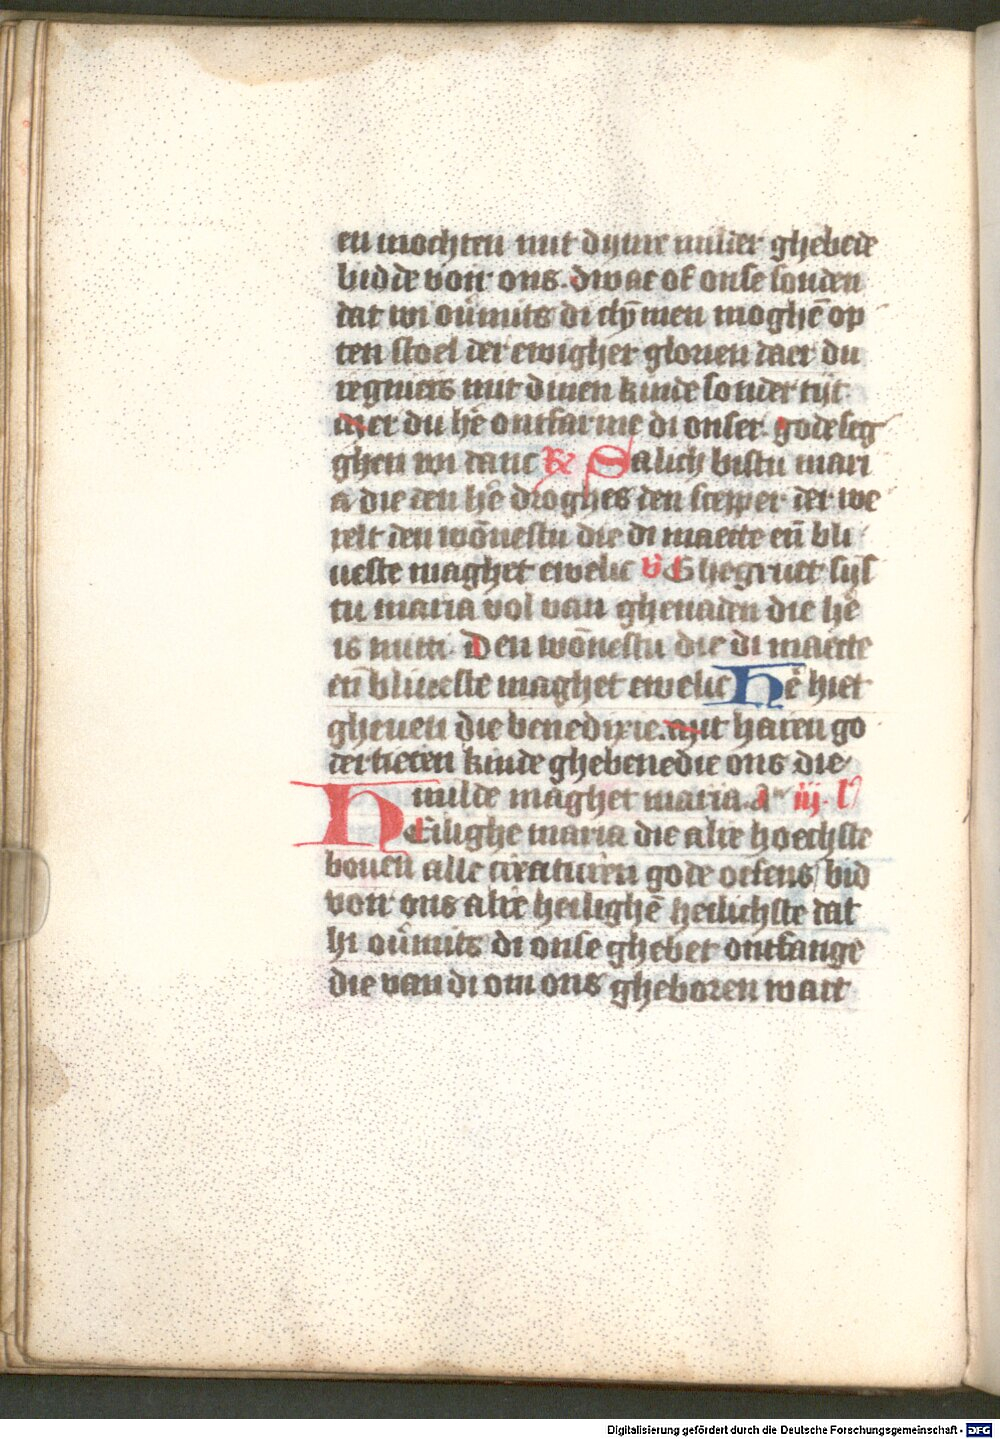 en mochten mit dijnre milder ghebede
bidde voir ons. dwae of onse sonden
dat wi oũmits di clȳmen moghē op
ten stoel der ewigher glorien daer du
regniers mit dinen kinde sonder tijt.
Mer du hē ontfarme di onser. gode seg
ghen wi danc ꝶ Salich bistu mari
a die den hē droghes den scepper der we
relt den wōnestu die di maecte eñ bli
ueste maghet ewelic v̄ Ghegruet sijs
tu maria vol van ghenaden die hē
is mitti. Den wōnestu die di maecte
eñ bliueste maghet ewelic Hē hiet
gheuen die benedixie. Mit haren go
dertieren kinde ghebenedie ons die
milde maghet maria. A iij. l
Heilighe maria die alre hoechste
bouen alle creaturen gode oefens bid
voir ons alre heilighē heilichste dat
hi oũmits di onse ghebet ontfange
die van di om ons gheboren wart
Digitalisierung gefördert durch die Deutsche Forschungsgemeinschaft - DFG